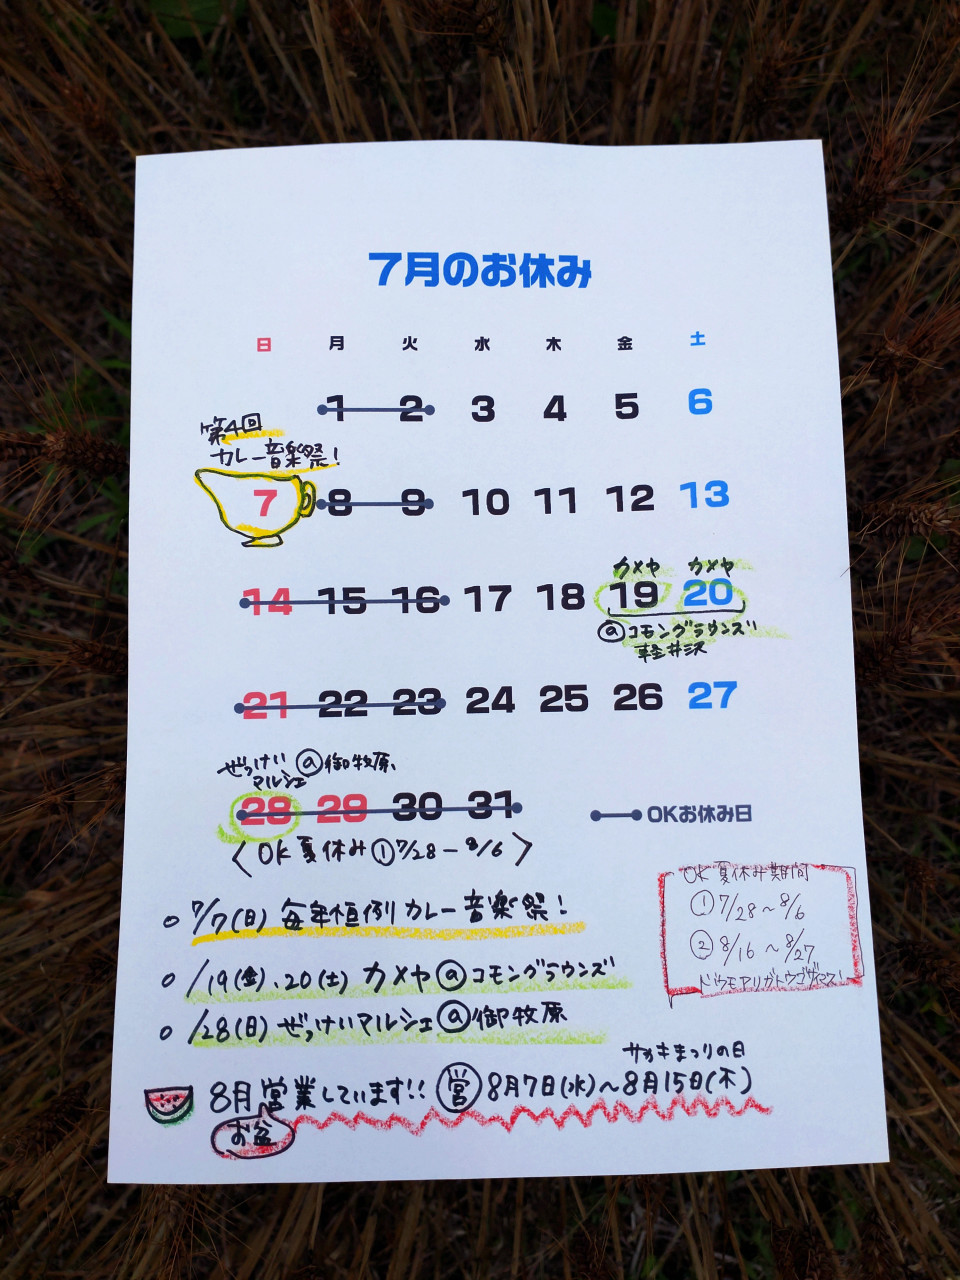 7月のお休み
日 月 火 水 木 金 土
1 2 3 4 5 6
第4回
カレー音楽祭!
7 8 9 10 11 12 13
カメヤ カメヤ
14 15 16 17 18 19 20
@コモングラウンズ
軽井沢
21 22 23 24 25 26 27
ぜっけい @御牧原
マルシェ
28 29 30 31 OKお休み日
〈OK夏休み①7/28-8/6〉
OK夏休み期間
①7/28~8/6
②8/16~8/27
ドウモアリガトウゴザイマス!
○ 7/7(日) 毎年恒例カレー音楽祭!
○ /19(金)、20(土) カメヤ@コモングラウンズ
○ /28(日) ぜっけいマルシェ@御牧原
サカキまつりの日
8月営業しています!! 営 8月7日(水)~8月15日(木)
お盆